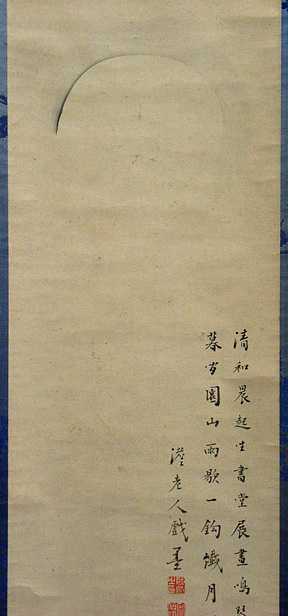 清和晨起坐書堂展畫鳴琴
暮 園山雨歇一鈎纖月
澄老人戲墨